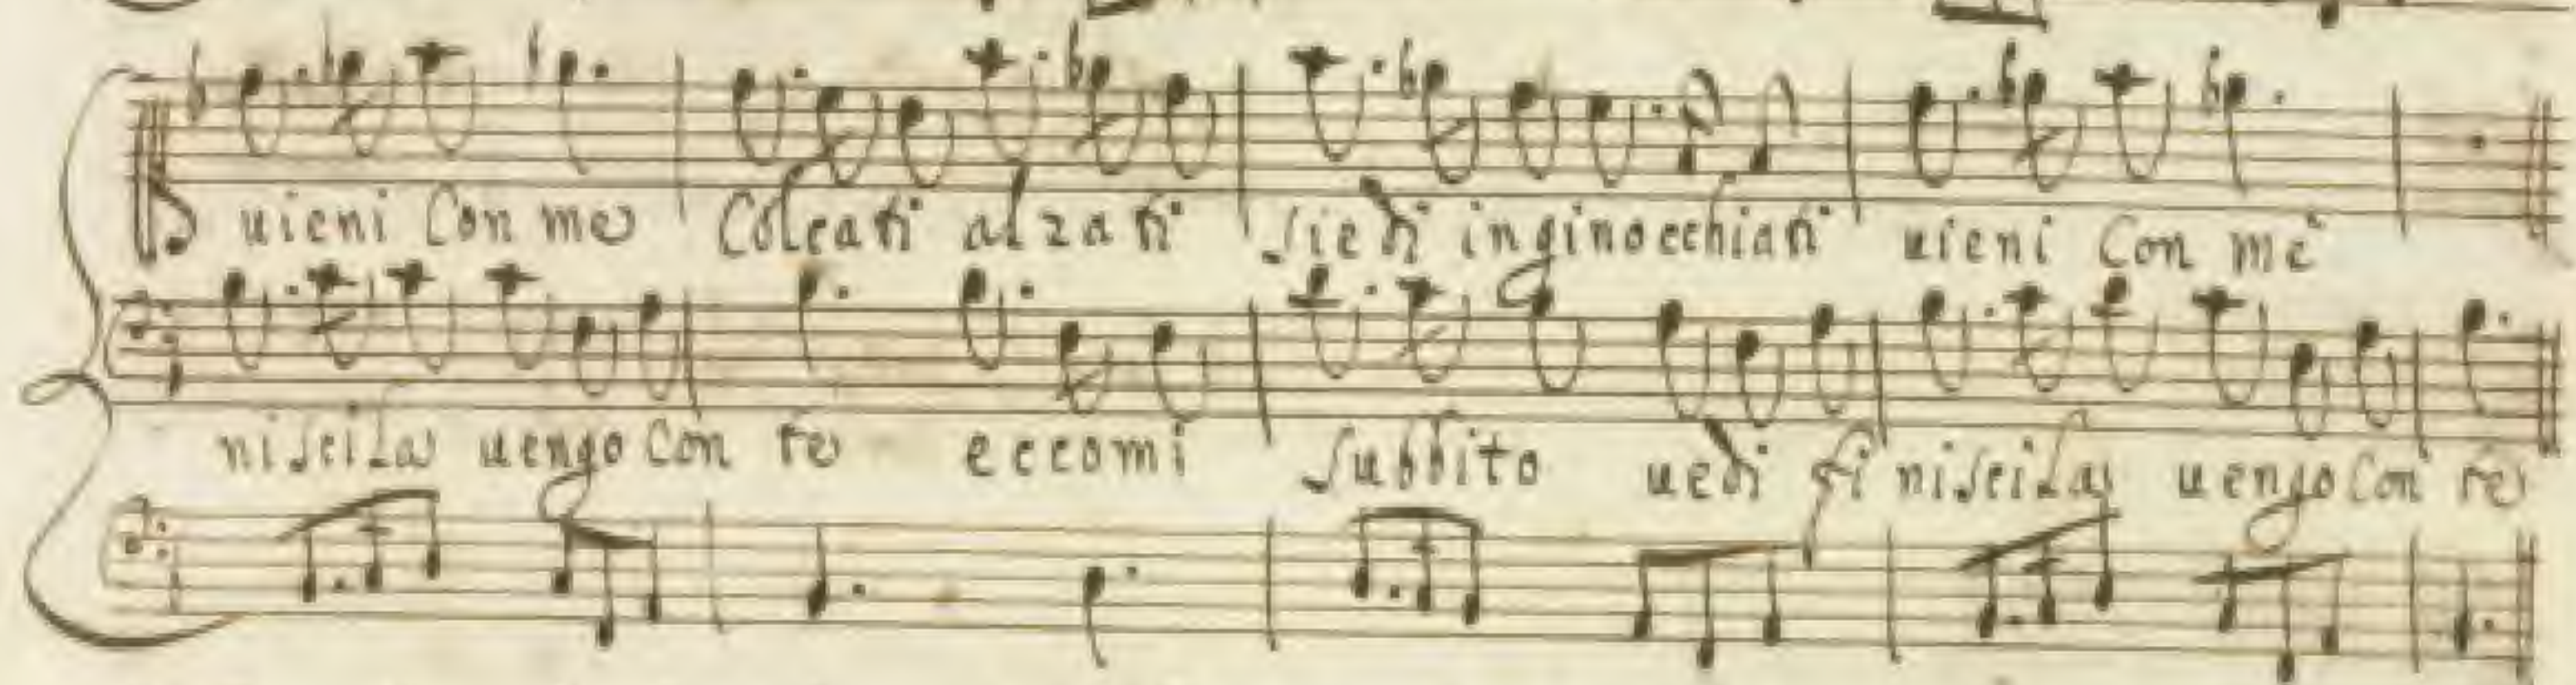 uieni Con me Colcati alzati Siedi inginocchiati uieni Con me
niscila uengo Con te eccomi Subbito uedi finiscila uengo Con te